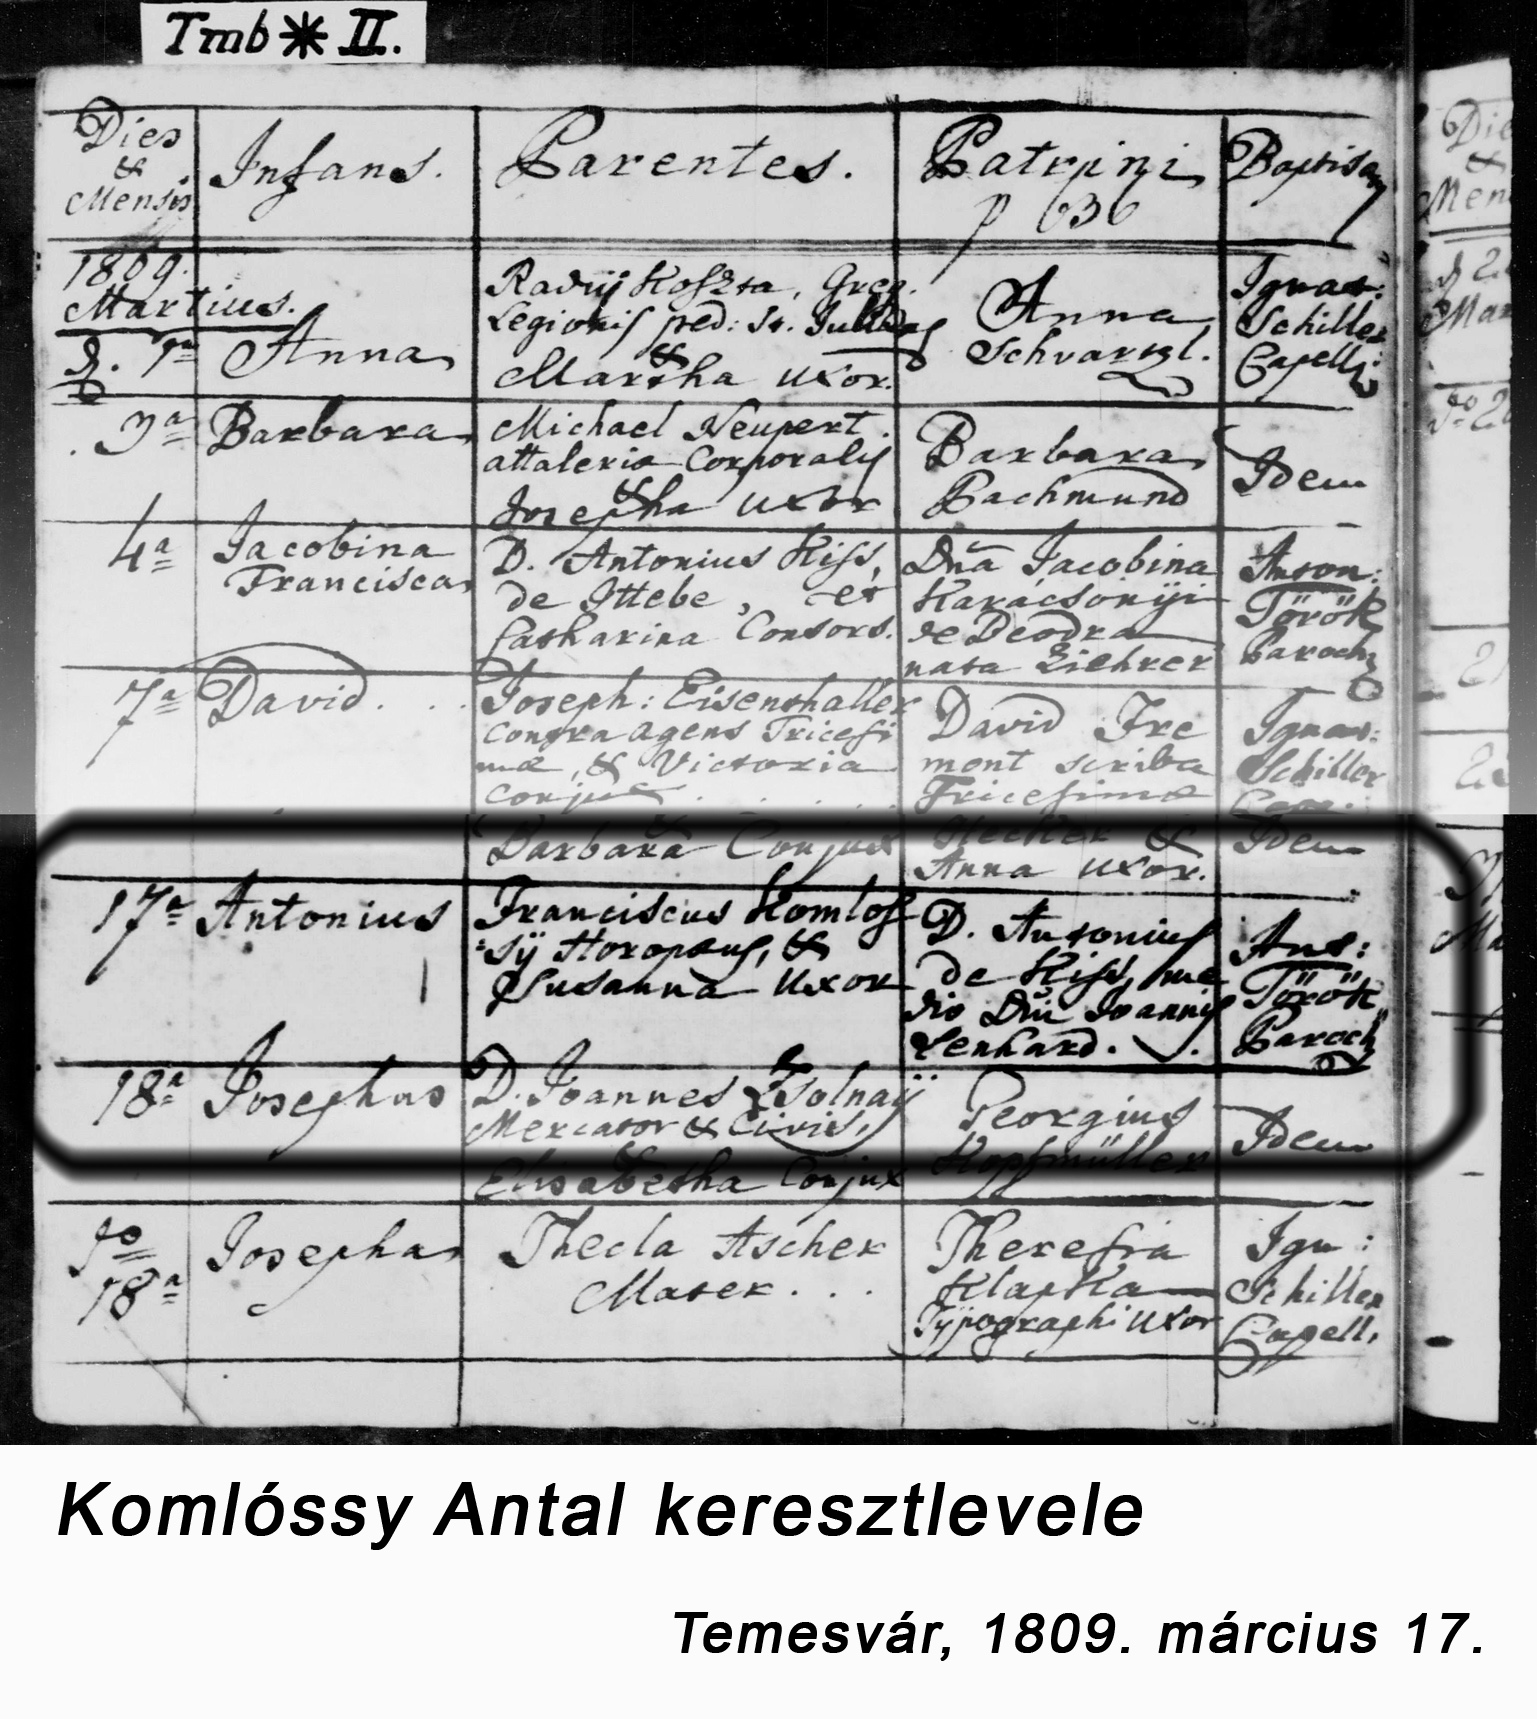 Tmb * II.
Dies & Mensis
Infans.
Parentes.
Patrini
p 636
Baptisans
1809.
Martius.
D. 1ª
Anna
Radvij Koszta, Greg.
Legionis ped:
&
Martha uxor.
Anna
Schvarzl.
Ignat:
Schiller
Capell:
3ª
Barbara
Michael Neupert
Corporalis
&
Josepha uxor
Barbara
Bachmund
Idem
4ª
Jacobina
Francisca
D. Antonius Kiss,
de Ittebe, et
Catharina Consors.
Dna Jacobina
Karácsonÿi
de Beodra
nata Ziehrer
Anton:
Török
Paroch
7ª
David . .
Joseph: Eisenthaller
Contra agens Tricesi
mæ, & Victoria
conjux . . . .
David Fre
mont scriba
Tricesimæ
Ignat:
Schiller
&
Barbara Conjux
&
Anna uxor.
Idem
17ª
Antonius
Franciscus Komlos
sÿ &
Susanna Uxor
D. Antonius
de Kiss, me
dio Dni Joannis
Lenhard.
Ant:
Török
Paroch
18ª
Josephus
D. Joannes Zsolnaÿ
Mercator & Civis,
&
Elisabetha Conjux
Georgius
Kopfmüller
Idem
18ª
Josepha
Thecla Ascher
Mater . . .
Theresia
Klapka
Typographi Uxor
Ign:
Schiller
Capell.
Komlóssy Antal keresztlevele
Temesvár, 1809. március 17.